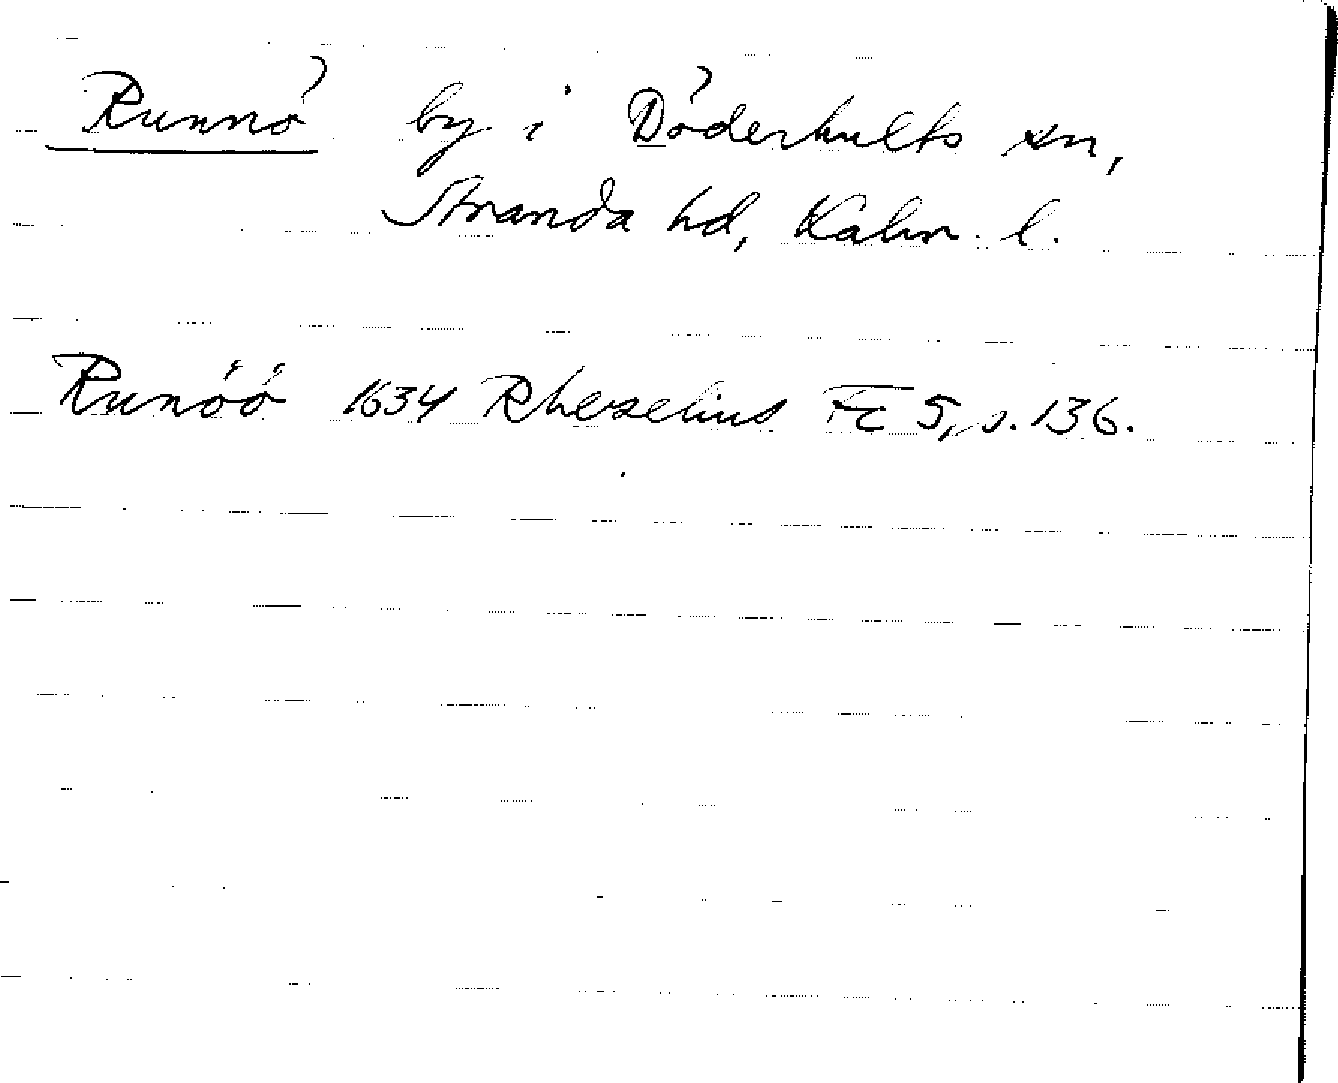 Runnö by i Döderhults sn,
Stranda hd, Kalm. l.
Runöö 1634 Rhezelius Fc 5, s. 136.